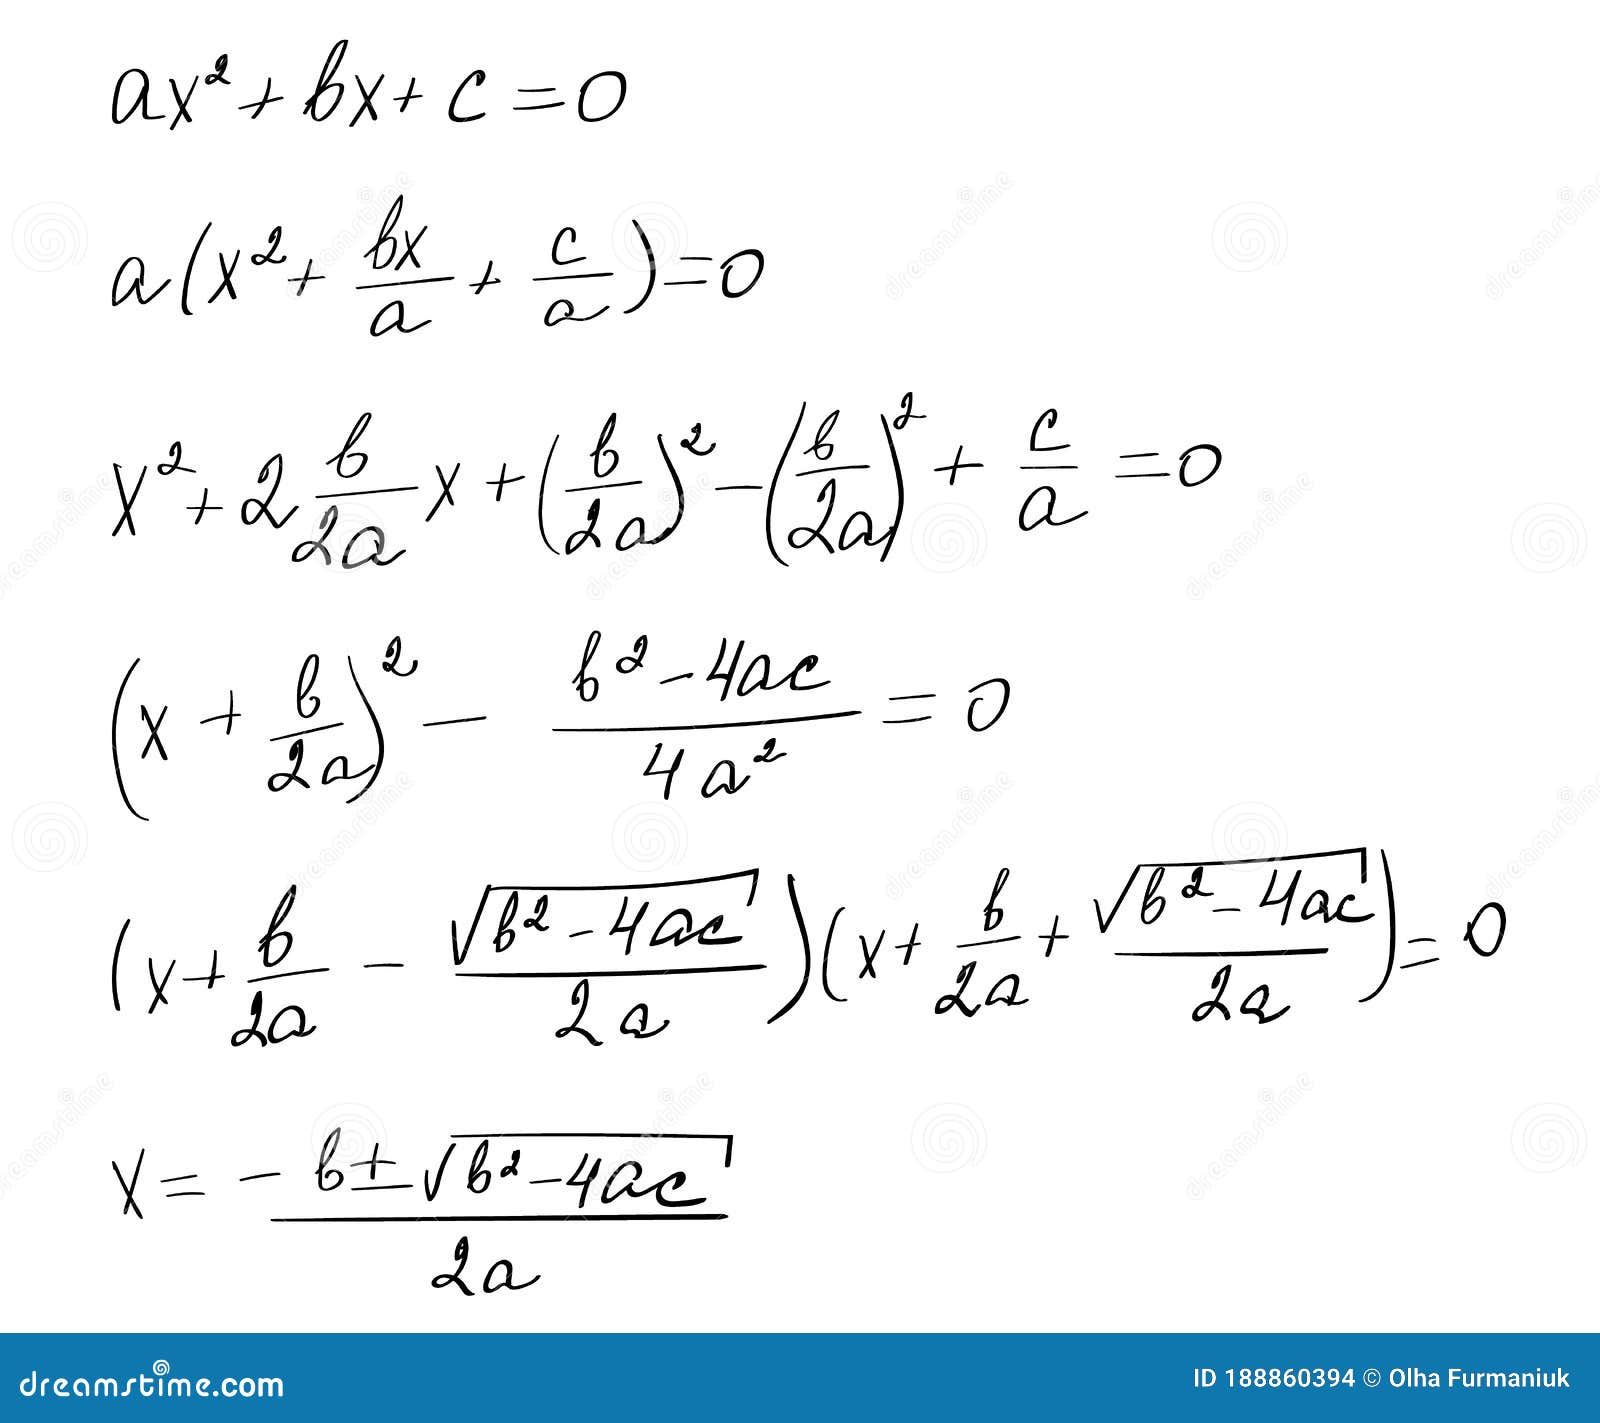 ax² + bx + c = 0
a(x² + bx/a + c/a) = 0
x² + 2 b/2a x + (b/2a)² - (b/2a)² + c/a = 0
(x + b/2a)² - (b² - 4ac)/4a² = 0
(x + b/2a - √(b² - 4ac)/2a)(x + b/2a + √(b² - 4ac)/2a) = 0
x = (-b ± √(b² - 4ac))/2a
dreamstime.com
ID 188860394 © Olha Furmaniuk